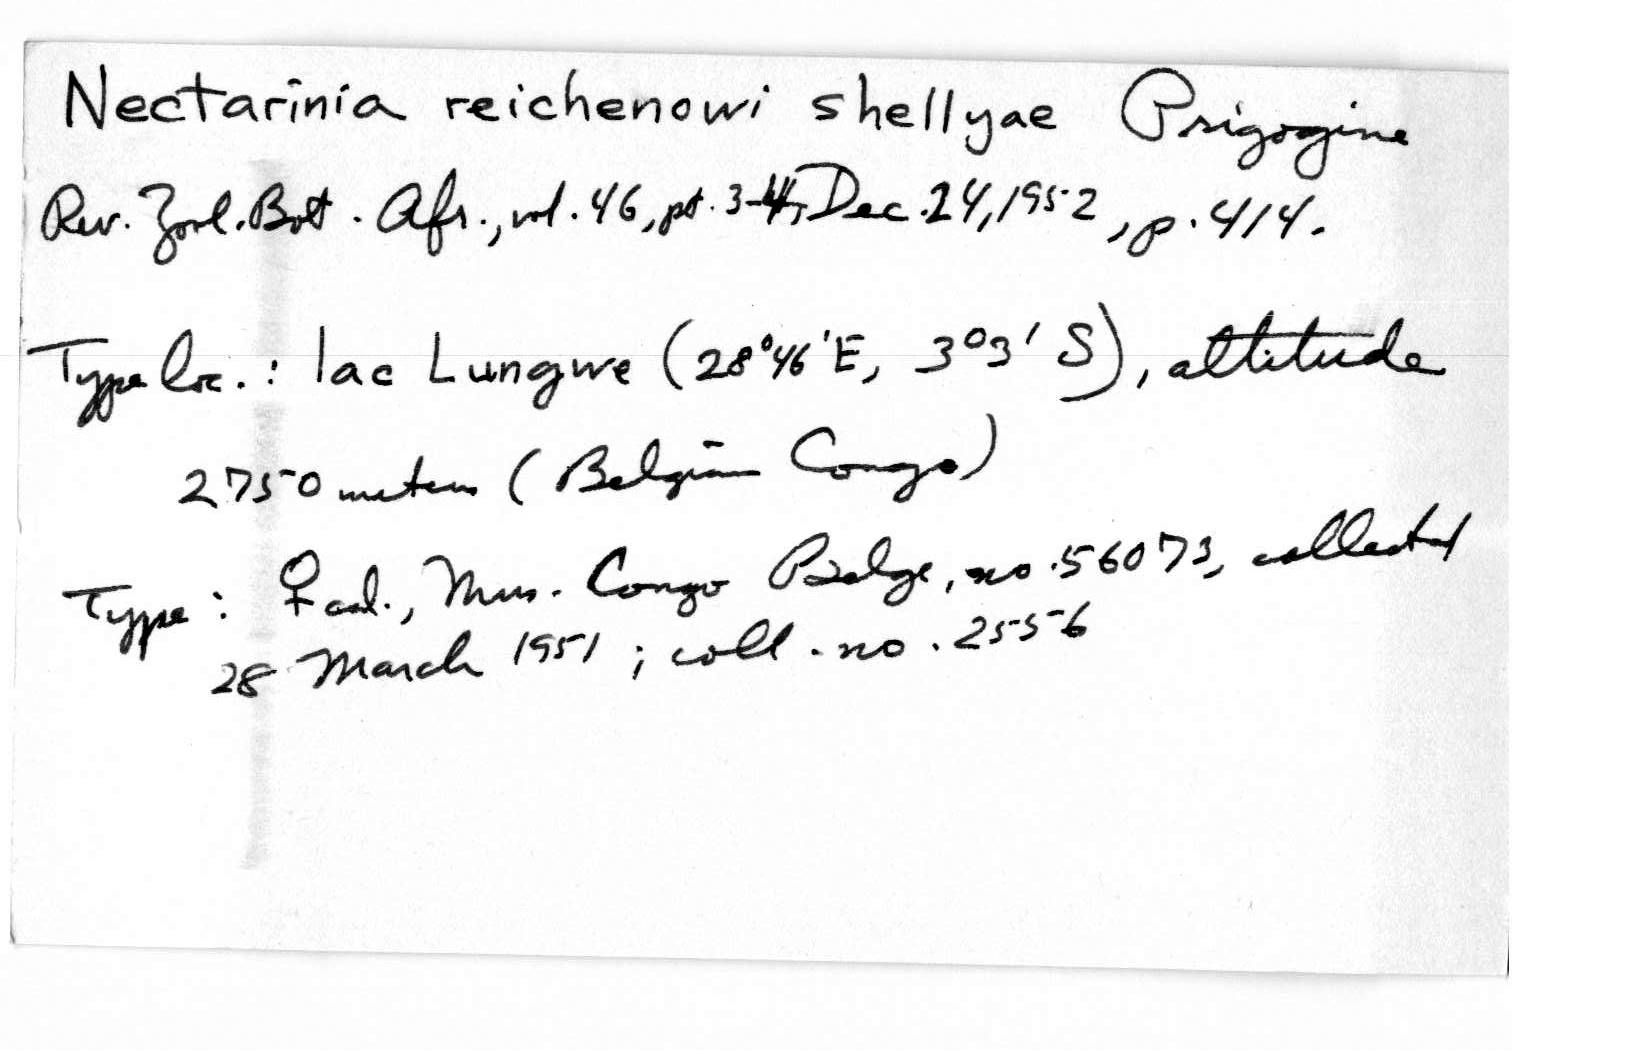 Nectarinia reichenowi shellyae Prigogine
Rev. Zool. Bot. Afr., vol. 46, pt. 3-4, Dec. 24, 1952, p. 414.
Type loc.: lac Lungwe (28°46'E, 3°3' S), altitude
2750 meters (Belgian Congo)
Type: ♀ ad., Mus. Congo Belge, no. 56073, collected
28 March 1951; coll. no. 2556